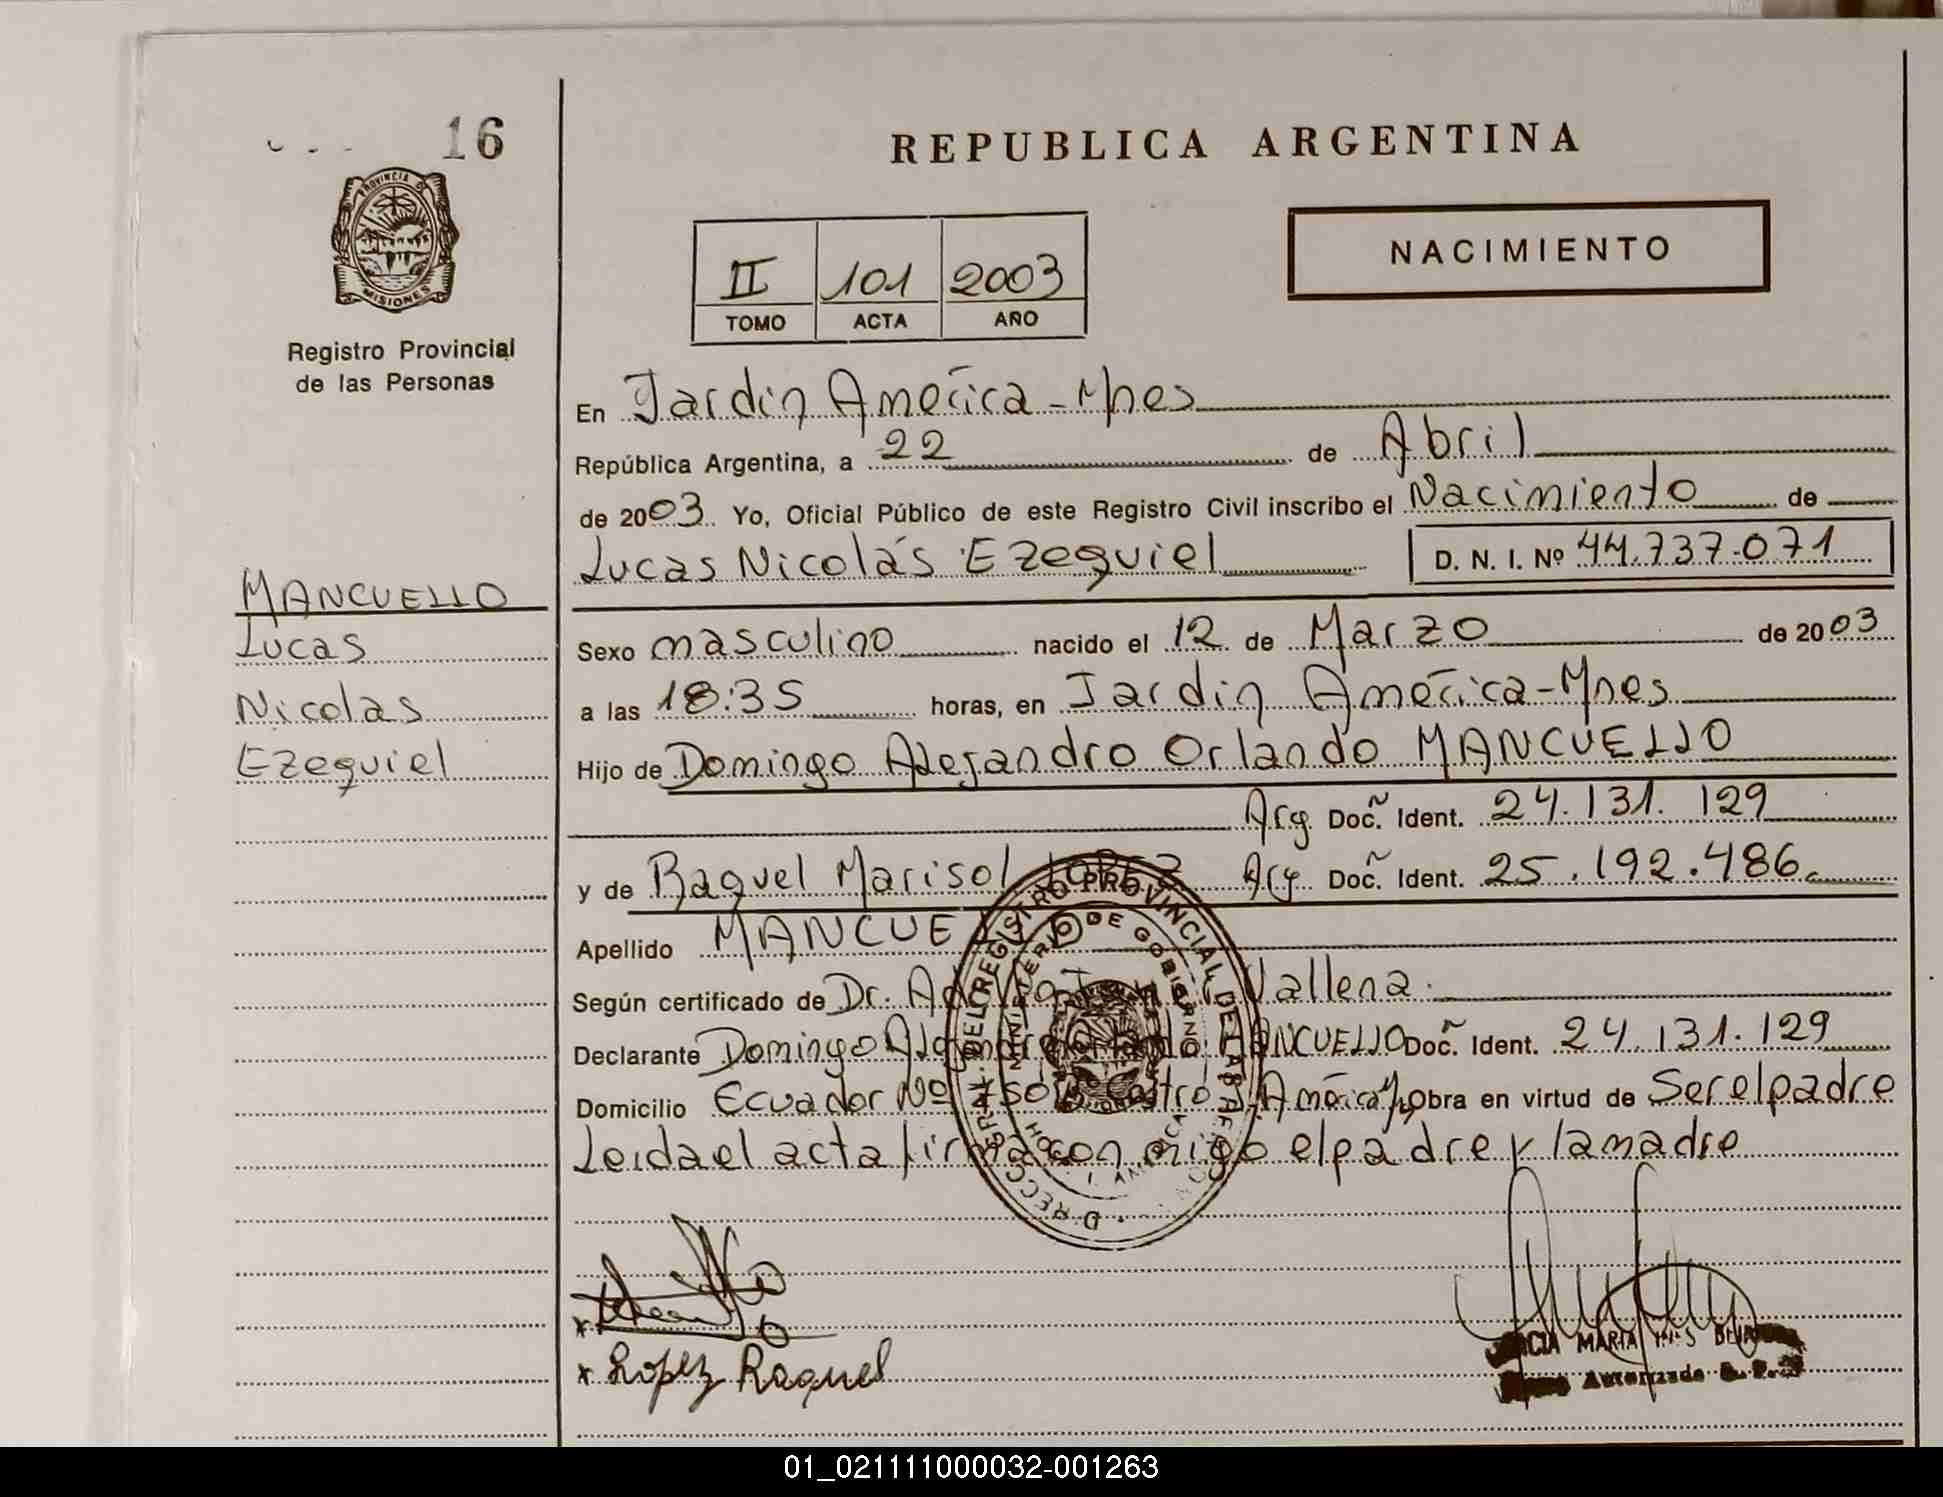 16
PROVINCIA DE
MISIONES
Registro Provincial
de las Personas
MANCUELLO
Lucas
Nicolas
Ezequiel
REPUBLICA ARGENTINA
NACIMIENTO
II 101 2003
TOMO ACTA AÑO
En Jardin América - Mnes
República Argentina, a 22 de Abril
de 2003. Yo, Oficial Público de este Registro Civil inscribo el Nacimiento de
Lucas Nicolás Ezequiel D. N. I. Nº 44.737.071
Sexo masculino nacido el 12 de Marzo de 2003
a las 18:35 horas, en Jardin América - Mnes
Hijo de Domingo Alejandro Orlando MANCUELLO
Arg. Docñ. Ident. 24.131.129
y de Raquel Marisol LOPEZ Arg. Docñ. Ident. 25.192.486
Apellido MANCUE
Según certificado de Dr. Vallena
Declarante Domingo Alejandro MANCUELLO Docñ. Ident. 24.131.129
Domicilio Ecuador Nº América obra en virtud de Ser el padre
Leida el acta firma con migo el padre y la madre
REGISTRO PROVINCIAL DE LAS
MINISTERIO DE GOBIERNO
Lopez Raquel
MARIA INES
Autorizado
01_021111000032-001263